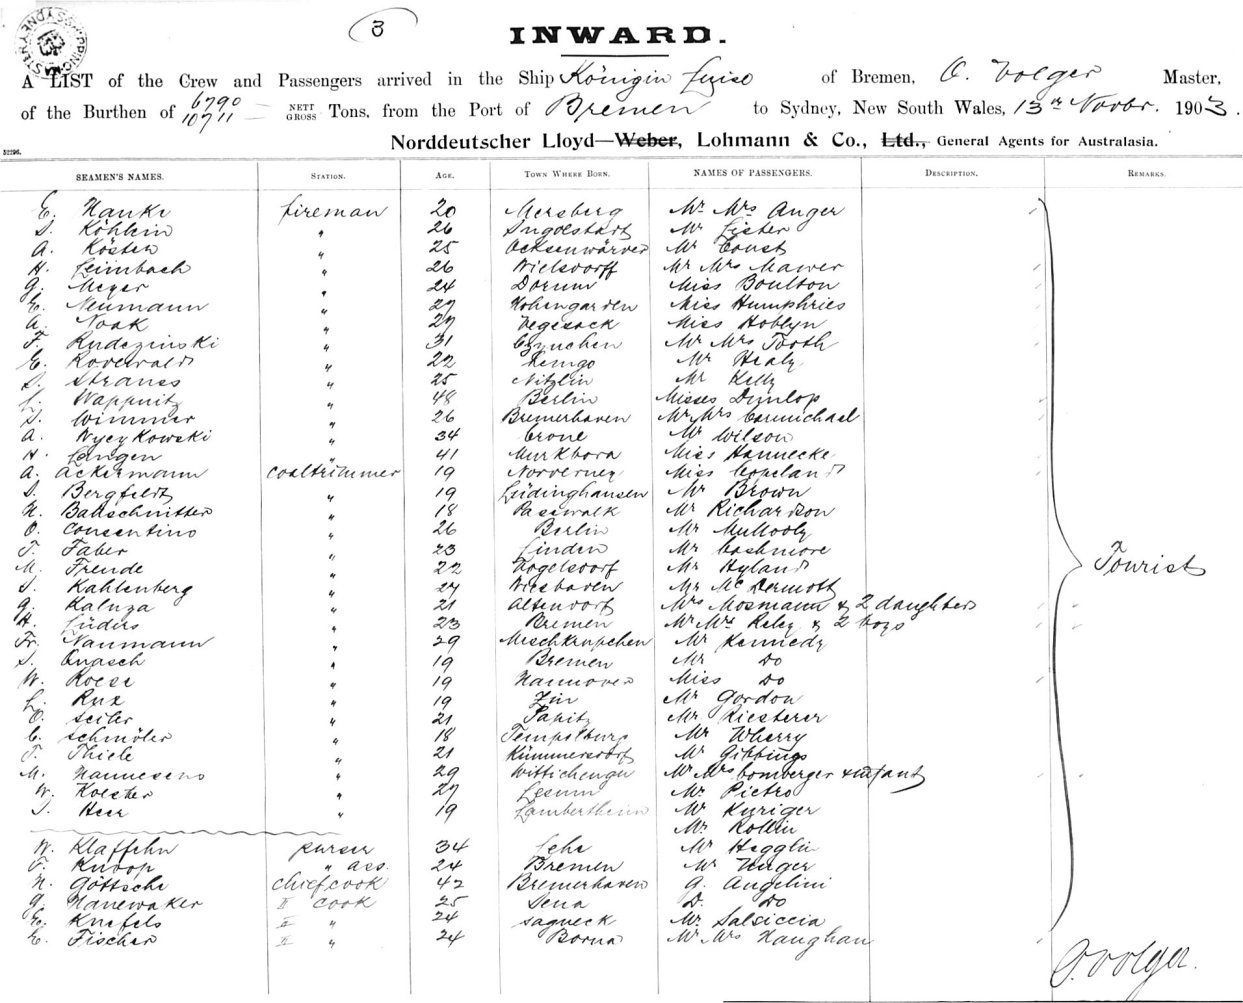 3
INWARD.
A LIST of the Crew and Passengers arrived in the Ship Königin Luise of Bremen, O. Volger Master,
of the Burthen of 6790 10711 NETT GROSS Tons, from the Port of Bremen to Sydney, New South Wales, 13th Novbr. 1903.
Norddeutscher Lloyd—Weber, Lohmann & Co., Ltd., General Agents for Australasia.
52296.
SEAMEN'S NAMES. STATION. AGE. TOWN WHERE BORN. NAMES OF PASSENGERS. DESCRIPTION. REMARKS.
E. Hanke fireman 20 Mersberg Mr Mrs Anger
Köhlein " 26 Ingolstadt Mr Lister
A. Kösten " 25 Mr Coust
H. Leimbach " 26 Wielsdorff Mr Mrs Mawer
G. Meyer " 24 Dorum Miss Boulton
E. Neumann " 27 Hohengarden Miss Humphries
A. Noak " 27 Vegesack Miss Hoblyn
F. Rudczinski " 31 Mr Mrs Tooth
E. " 22 Lemgo Mr Healy
Strauss " 25 Nitzlin Mr Kelly
Wappnitz " 48 Berlin Misses Dunlop
Wimmer " 26 Bremerhaven Mr Mrs Carmichael
A. Wycykowski " 34 Crone Mr Wilson
H. Langen " 41 Murkbora Miss Hannecke
A. Ackermann coaltrimmer 19 Norderney Miss Copeland
Bergfeldt " 19 Lüdinghausen Mr Brown
H. Ballschmitter " 18 Pasewalk Mr Richardson
O. Consentino " 26 Berlin Mr Mullooly
T. Faber " 23 Linden Mr Cashmore
M. Freude " 22 Vogelsdorf Mr Hyland
Kahlenberg " 27 Wiesbaden Mr Mc Dermott
G. Kaluza " 21 Altendorf Mrs Mosmann & 2 daughters
H. Lüders " 23 Bremen Mr Mrs Reley & 2 boys
Fr. Naumann " 29 Mischkrupchen Mr Kennedy
Quasch " 19 Bremen Mr Do
W. Roese " 19 Hannover Miss Do
L. Rux " 19 Zin Mr Gordon
O. Seiler " 21 Papitz Mr Riesterer
C. Schmöler " 18 Tempelburg Mr Wherry
T. Thiele " 21 Kümmersdorf Mr Gibbings
M. Hannesens " 29 Wittichenau Mr Mrs Bomberger & infant
W. Koester " 27 Lesum Mr Pietro
Heer " 19 Lambertheim Mr Kyriger
Mr Rollin
W. Klaffehn purser 34 Lehe Mr Hegglin
F. Knoop " ass. 24 Bremen Mr Unger
H. Göttsche chiefcook 42 Bremerhaven G. Angelini
G. Hanewaker II cook 25 Jena D. Do
E. Knefels II " 24 Sagneck Mr Salsiccia
E. Fischer II " 24 Borna Mr Mrs Naughan
Tourist
O. Volger.